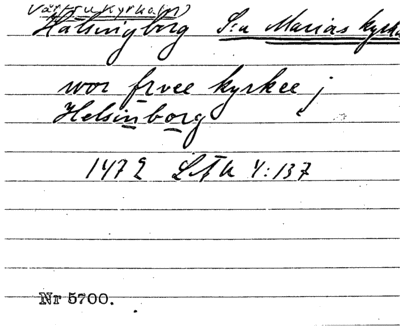 Vårfrukyrka(n)
Hälsingborg S:a Marias kyrka
wor frvee kyrkee j
Helsinborg
1472 LTK 4:137
Nr 5700.